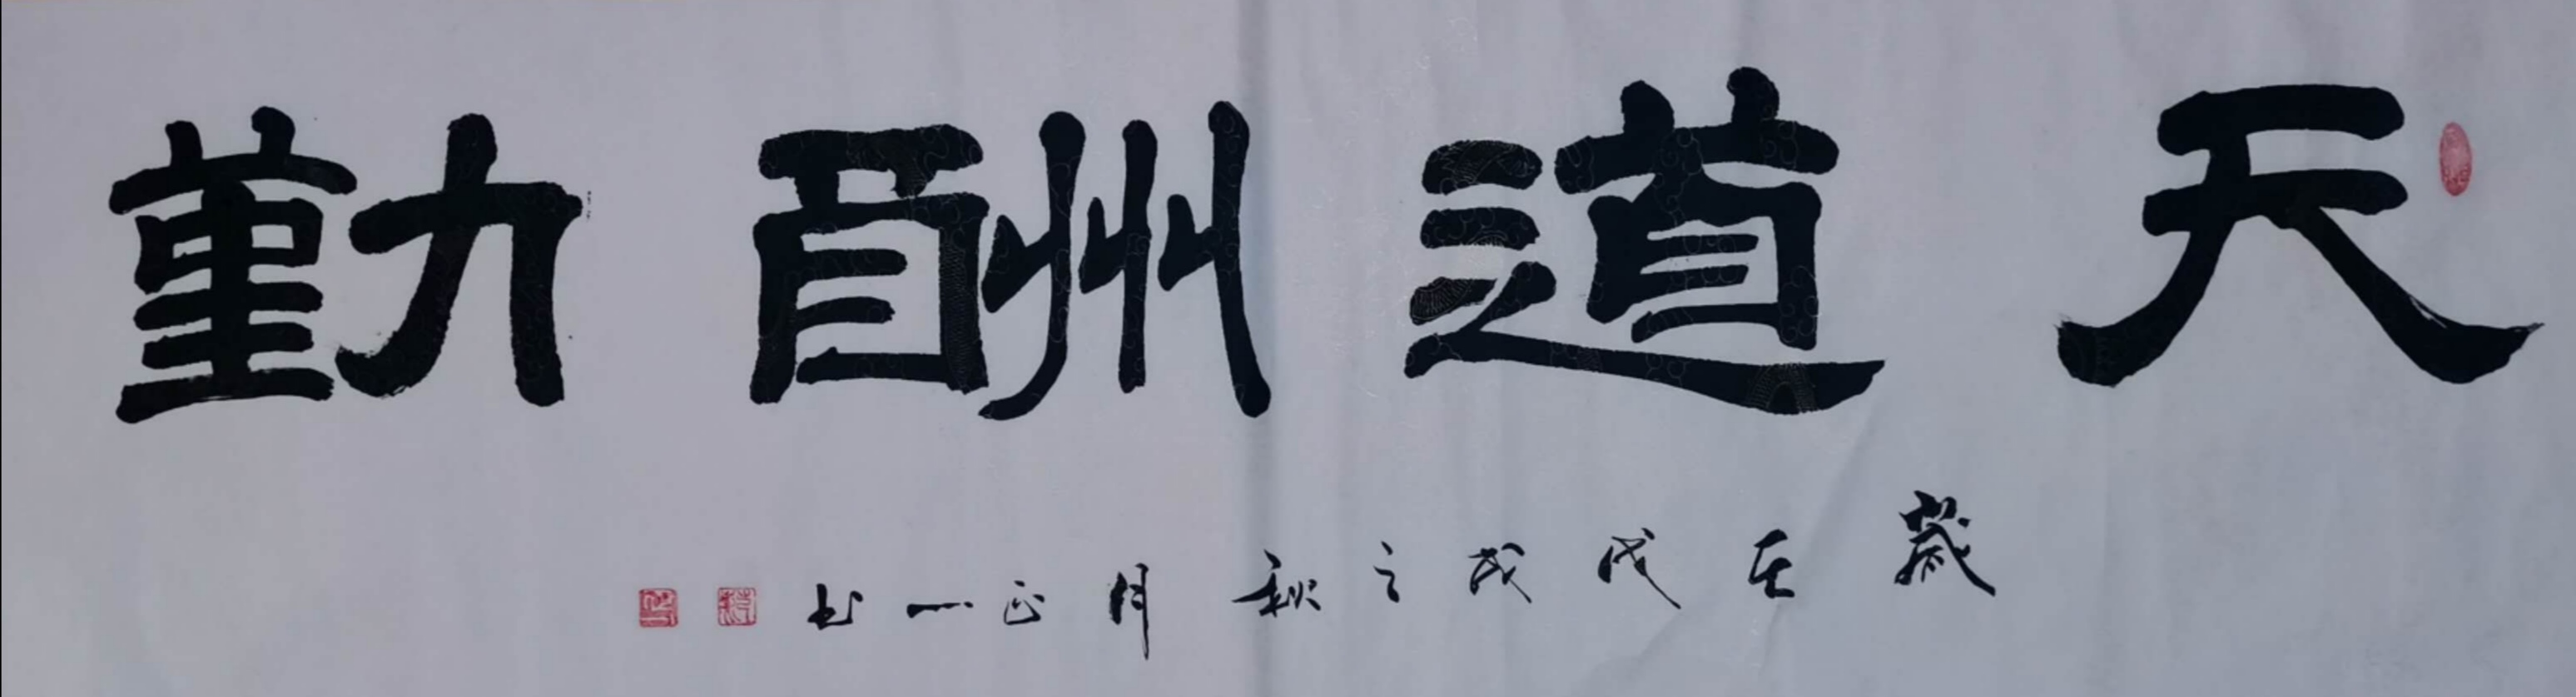 天道酬勤
歲在戊戌之秋月正一书